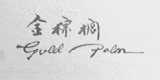 金棕榈
Gold Palm